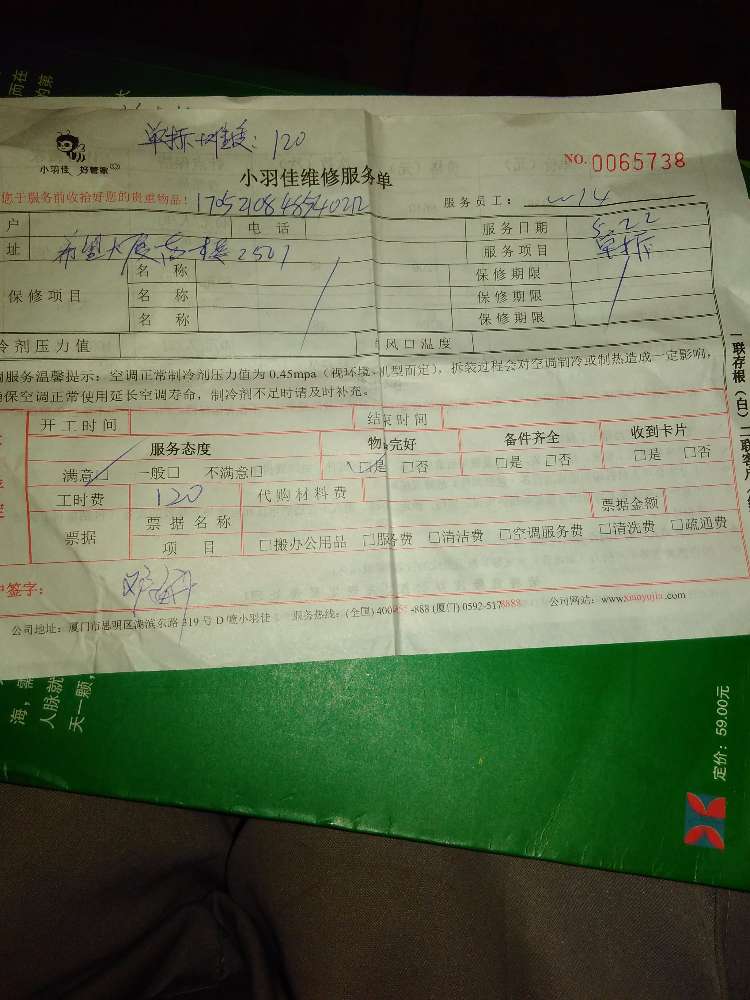 单拆+难度：120
小羽佳 好管家
小羽佳维修服务单
NO. 0065738
您于服务前收拾好您的贵重物品！
服务员工： W14
户 电话 服务日期 5.22
址 服务项目 单拆
2501
保修项目 名称 保修期限
名称 保修期限
名称 保修期限
冷剂压力值 风口温度
调服务温馨提示：空调正常制冷剂压力值为 0.45mpa（视环境、机型而定），拆装过程会对空调制冷或制热造成一定影响，
确保空调正常使用延长空调寿命，制冷剂不足时请及时补充。
开工时间 结束时间
服务态度 物品完好 备件齐全 收到卡片
满意□ 一般□ 不满意□ □是 □否 □是 □否 □是 □否
工时费 120 代购材料费
票据 票据名称 票据金额
项目 □搬办公用品 □服务费 □清洁费 □空调服务费 □清洗费 □疏通费
户签字：
公司地址：厦门市思明区湖滨东路 319 号 D 幢小羽佳 服务热线：(全国) -888 (厦门) 0592-5178888 公司网站：www.xiaoyujia.com
一联存根（白）二联客户
而在
的第
海，
人脉就
天一颗，
定价：59.00元